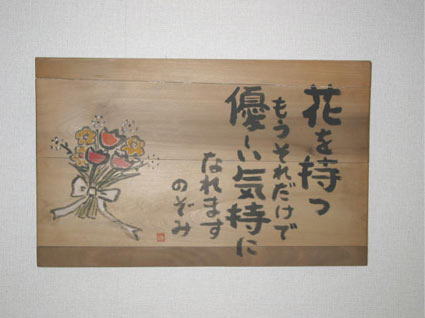 花を持つ
もうそれだけで
優しい気持に
なれます
のぞみ